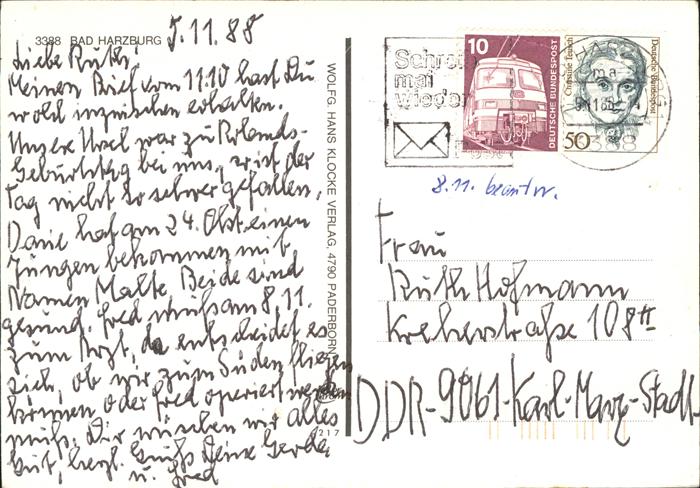 3388 BAD HARZBURG 5.11.88
Liebe Ruth!
Meinen Brief vom 11.10 hast Du
wohl inzwischen erhalten.
Unsere Ursel war zu Rolands-
Geburtstag bei uns, so ist der
Tag nicht so schwer gefallen.
hat am 24. Okt. einen
Jungen bekommen mit
Namen Malte. Beide sind
gesund. Fred muß am 8.11.
zum Arzt, da entscheidet es
sich, ob wir zum Süden fliegen
können oder Fred operiert werden
muß. Dir wünschen wir alles
Gut, herzl. Grüße Deine Gerda
u. Fred
WOLFG. HANS KLOCKE VERLAG, 4790 PADERBORN
217
Schreib
mal
wieder
10
DEUTSCHE BUNDESPOST
Christine Teusch
Deutsche Bundespost
50
8.11. beantw.
Frau
Ruth Hofmann
Kreherstraße 108 II
DDR-9061-Karl-Marx-Stadt